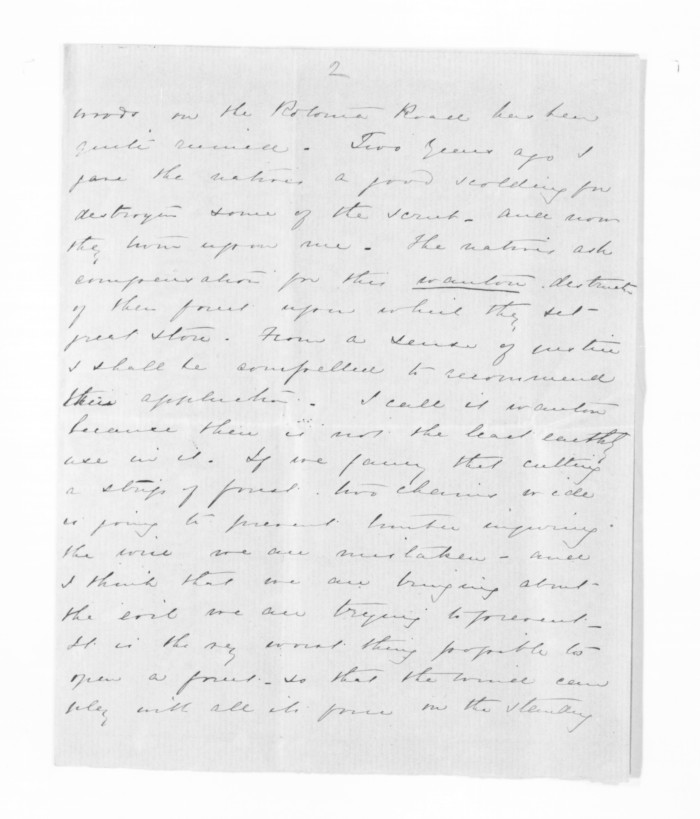 2
woods on the Rotoma Road has been
quite ruined. Two years ago I
gave the natives a good scolding for
destroying some of the scrub. and now
they turn upon me. The natives ask
compensation for this wanton destruct
of their forest upon which they set
great store. From a sense of justice
I shall be compelled to recommend
their application. I call it wanton
because there is not the least earthly
use in it. If we fancy that cutting
a strip of forest two chains wide
is going to prevent timber injuring
the wire we are mistaken - and
I think that we are bringing about
the evil we are trying to prevent -
It is the very worst thing possible to
open a forest - so that the wind can
play with all its force on the standing